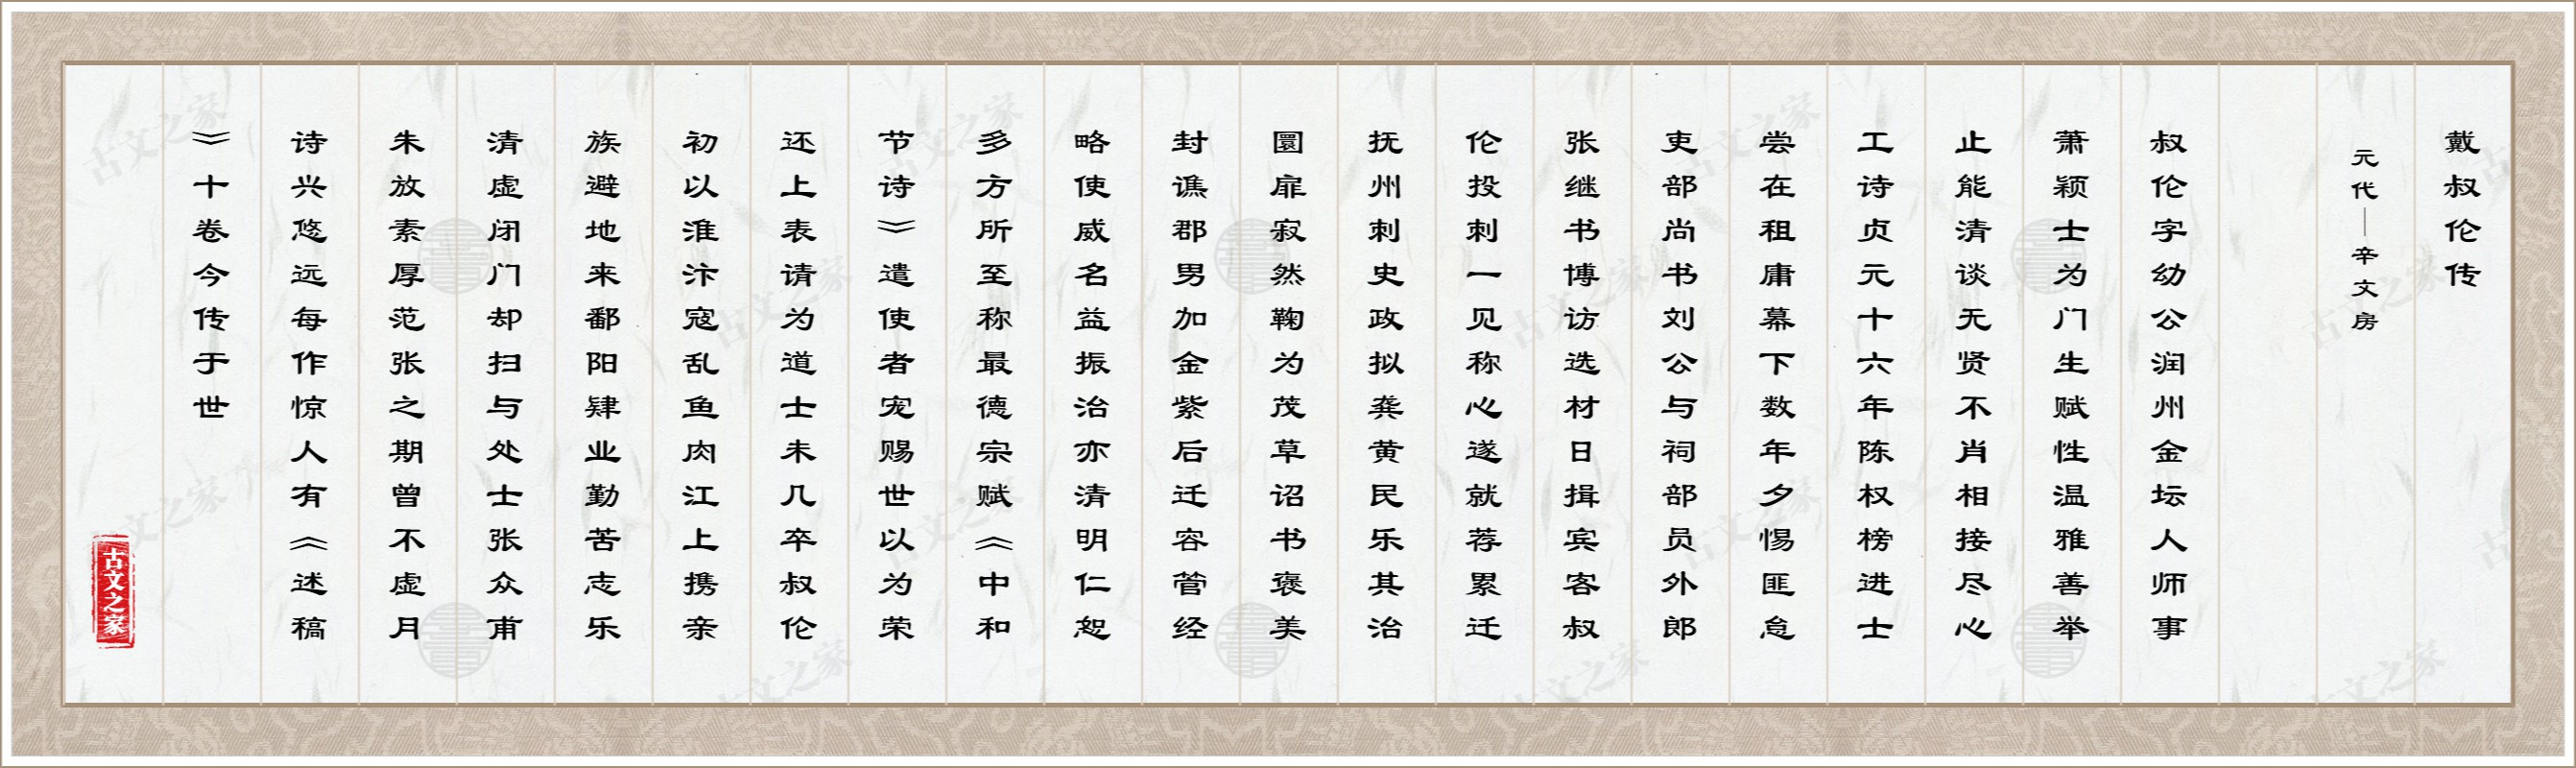 戴叔伦传
元代｜辛文房
叔伦字幼公润州金坛人师事
萧颖士为门生赋性温雅善举
止能清谈无贤不肖相接尽心
工诗贞元十六年陈权榜进士
尝在租庸幕下数年夕惕匪怠
吏部尚书刘公与祠部员外郎
张继书博访选材日揖宾客叔
伦投刺一见称心遂就荐累迁
抚州刺史政拟龚黄民乐其治
圜扉寂然鞠为茂草诏书褒美
封谯郡男加金紫后迁容管经
略使威名益振治亦清明仁恕
多方所至称最德宗赋《中和
节诗》遣使者宠赐世以为荣
还上表请为道士未几卒叔伦
初以淮汴寇乱鱼肉江上携亲
族避地来鄱阳肄业勤苦志乐
清虚闭门却扫与处士张众甫
朱放素厚范张之期曾不虚月
诗兴悠远每作惊人有《述稿
》十卷今传于世
古文之家